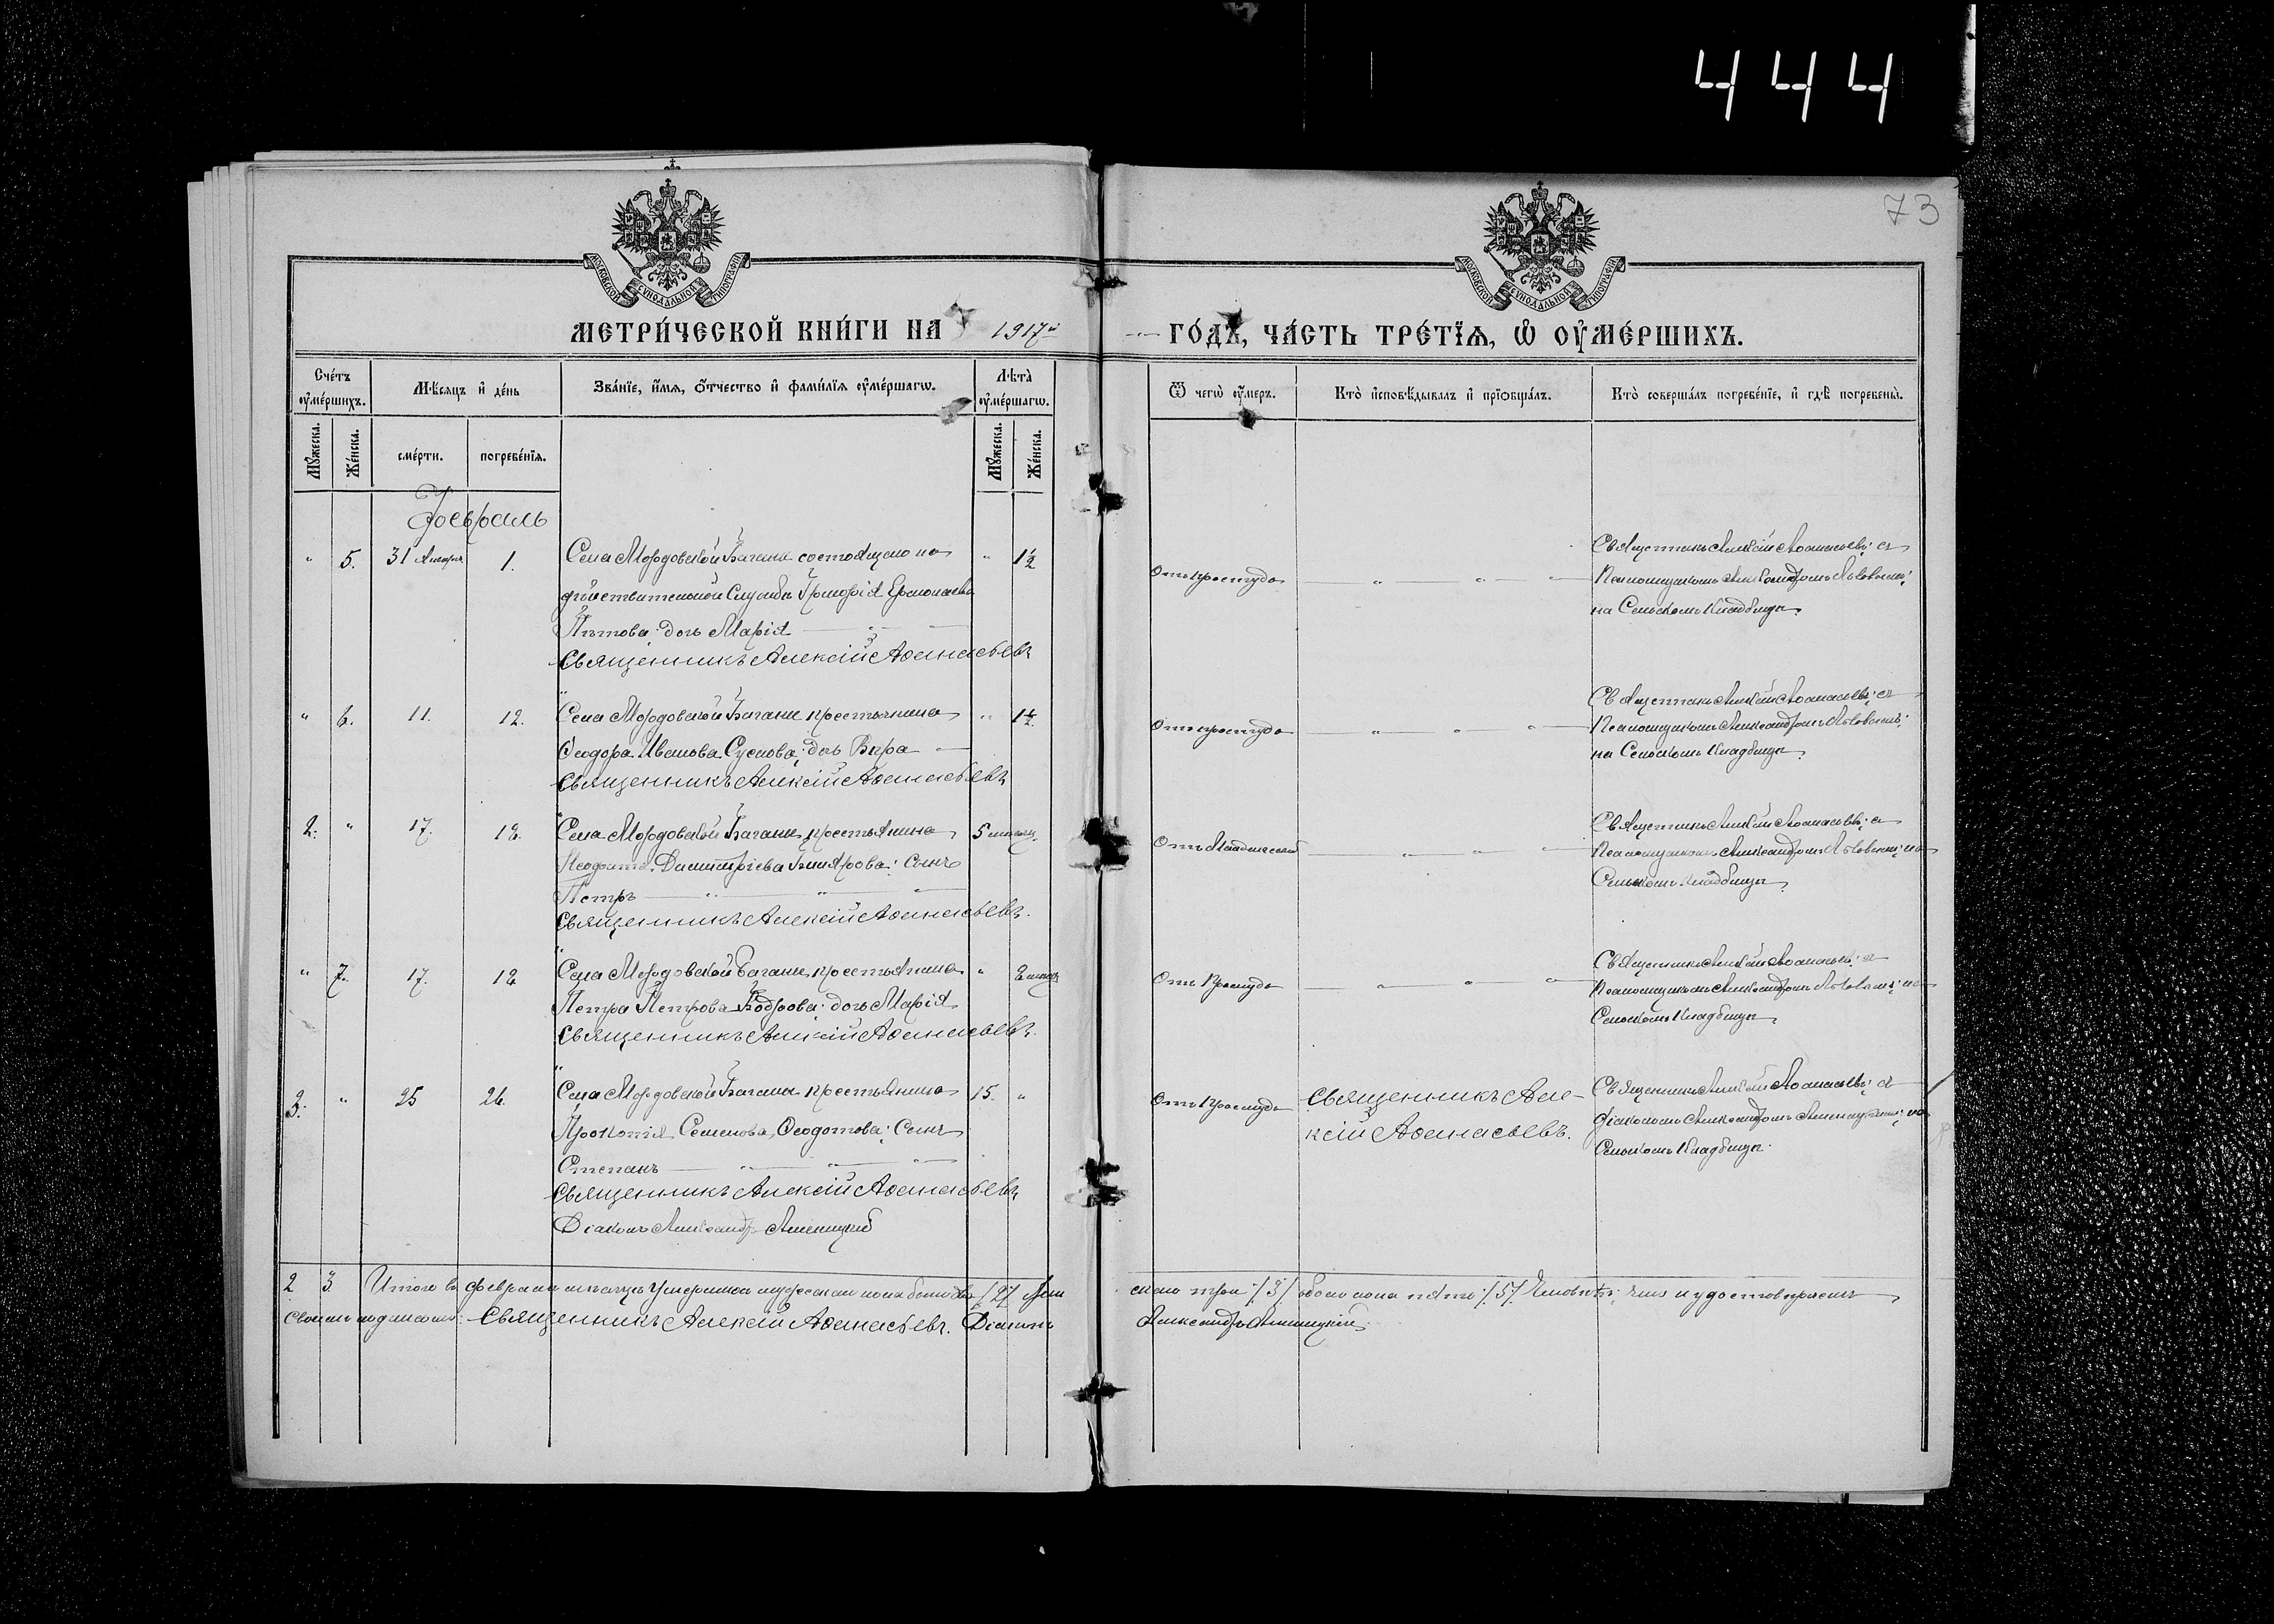 444
73
МОСКОВСКОЙ СѴНОДАЛЬНОЙ ТИПОГРАФІИ
МОСКОВСКОЙ СѴНОДАЛЬНОЙ ТИПОГРАФІИ
МЕТРИ́ЧЕСКОЙ КНИ́ГИ НА 1917й ГО́ДЪ, ЧА́СТЬ ТРЕ́ТЇѦ, Ѡ҆ ОУ҆МЕ́РШИХЪ.
Сче́тъ оу҆ме́ршихъ.
Мѣ́сяцъ и҆ де́нь
Зва́нїе, и҆́мѧ, ѻ҆́тчество и҆ фами́лїѧ оу҆ме́ршагѡ.
Лѣта̀ оу҆ме́ршагѡ.
Ѿ чегѡ̀ оу҆́меръ.
Кто̀ и҆сповѣ́дывалъ и҆ прїѡбща́лъ.
Кто̀ соверша́лъ погребе́нїе, и҆ гдѣ̀ погребены̀.
Мꙋ́жеска.
Же́нска.
сме́рти.
погребе́нїѧ.
Мꙋ́жеска.
Же́нска.
Февраль
" 5. 31 Января 1.
Села Мордовской Багани состоящаго на
действительной службѣ Григорія Ермолаева
Пѣтова: дочь Марія
Священникъ Алексій Аѳанасьевъ
" 1½
Отъ простуды
Священникъ Алексій Аѳанасьевъ: съ
Псаломщикомъ Александромъ Львовымъ:
на Сельскомъ Кладбищѣ.
" 6. 11. 12.
Села Мордовской Багани крестьянина
Ѳеодора Иванова Суслова: дочь Вѣра
Священникъ Алексій Аѳанасьевъ
" 1½.
Отъ простуды
Священникъ Алексій Аѳанасьевъ: съ
Псаломщикомъ Александромъ Львовымъ:
на Сельскомъ Кладбищѣ.
2. " 17. 18.
Села Мордовской Багани крестьянина
Димитріева Сынъ
Петръ
Священникъ Алексій Аѳанасьевъ.
5 мѣсяц.
Отъ Младенческой
Священникъ Алексій Аѳанасьевъ: съ
Псаломщикомъ Александромъ Львовымъ: на
Сельскомъ Кладбищѣ.
" 7. 17. 18
Села Мордовской Багани крестьянина
Петра Петрова Бодрова: дочь Марія
Священникъ Алексій Аѳанасьевъ.
"
Отъ Простуды
Священникъ Алексій Аѳанасьевъ: съ
Псаломщикомъ Александромъ Львовымъ: на
Сельскомъ Кладбищѣ.
3. " 25 26.
Села Мордовской Багани крестьянина
Прокопія Семенова Ѳеодотова: Сынъ
Степанъ
Священникъ Алексій Аѳанасьевъ
Діаконъ Александръ
15. "
Отъ Простуды
Священникъ Але-
ксій Аѳанасьевъ.
Священникъ Алексій Аѳанасьевъ: съ
Діакономъ Александромъ на
Сельскомъ Кладбищѣ.
2 3 Итого въ Февралѣ мѣсяцѣ умершихъ мужескаго пола было два /2/ женскаго три /3/ обоего пола пять /5/ Человѣкъ; чѣмъ и удостовѣряемъ
своимъ подписомъ: Священникъ Алексій Аѳанасьевъ. Діаконъ Александръ